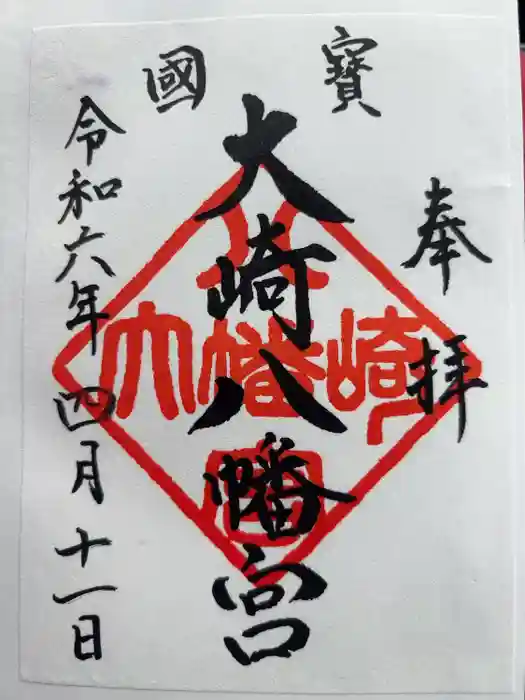 奉拝
寶國
大崎八幡宮
令和六年四月十一日
大幡崎